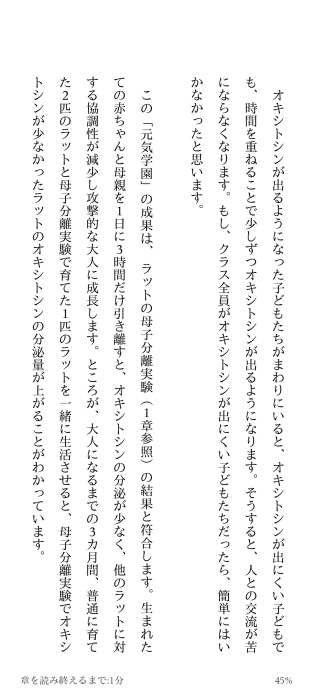 オキシトシンが出るようになった子どもたちがまわりにいると、オキシトシンが出にくい子どもで
も、時間を重ねることで少しずつオキシトシンが出るようになります。そうすると、人との交流が苦
にならなくなります。もし、クラス全員がオキシトシンが出にくい子どもたちだったら、簡単にはい
かなかったと思います。
この「元気学園」の成果は、ラットの母子分離実験（1章参照）の結果と符合します。生まれた
ての赤ちゃんと母親を1日に3時間だけ引き離すと、オキシトシンの分泌が少なく、他のラットに対
する協調性が減少し攻撃的な大人に成長します。ところが、大人になるまでの3カ月間、普通に育て
た2匹のラットと母子分離実験で育てた1匹のラットを一緒に生活させると、母子分離実験でオキシ
トシンが少なかったラットのオキシトシンの分泌量が上がることがわかっています。
章を読み終えるまで:1分
45%